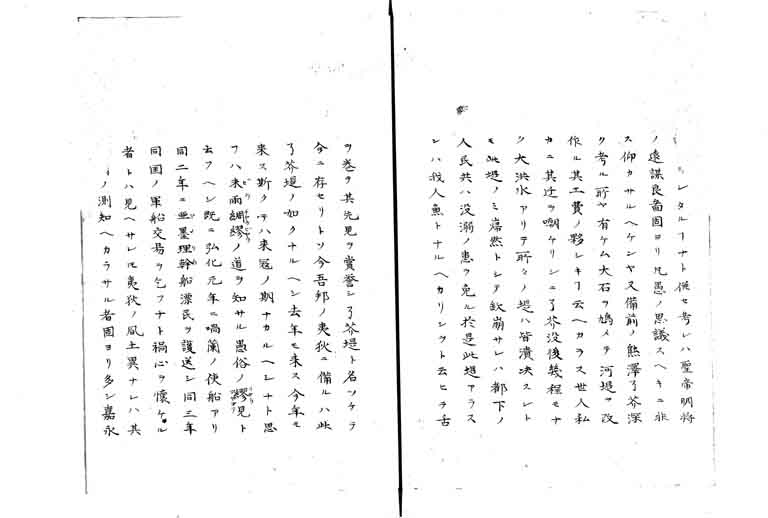 レタルヿナト併セ考レハ聖帝明将
ノ遠謀良畵固ヨリ凡愚ノ思議スヘキニ非
ス仰カサルヘケンヤ又備前ノ熊澤了芥深
ク考ル所ヤ有ケム大石ヲ鳩メテ河堤ヲ改
作ル其工費ノ夥シキヿ云ヘカラス世人私
カニ其迂ヲ嘲ケリシニ了芥没後幾程モナ
ク大洪水アリテ所々ノ堤ハ皆潰决スレト
モ此堤ノミ巋然トシテ欽崩サレハ都下ノ
人民共ハ没溺ノ患ヲ免ル於是此堤アラス
ンハ我人魚トナルヘカリシツト云ヒテ舌
ヲ巻テ其先見ヲ賞誉シ了芥堤ト名ツケテ
今ニ存セリトソ今吾邦ノ夷狄ニ備ルハ此
了芥堤ノ如クナルヘシ去年モ来ス今年モ
来ス斯クテハ来冦ノ期ナカルヘシナト思
フハ未雨綢繆ノ道ヲ知サル愚俗ノ繆見ト
云フヘシ既ニ弘化元年ニ喎蘭ノ使船アリ
同二年ニ亜墨理幹船漂民ヲ護送シ同三年
同国ノ軍船交易ヲ乞フナト禍心ヲ懐ケル
者トハ見ヘサレ𪜈夷狄ノ風土異ナレハ其
ノ測知ヘカラサル者固ヨリ多シ嘉永